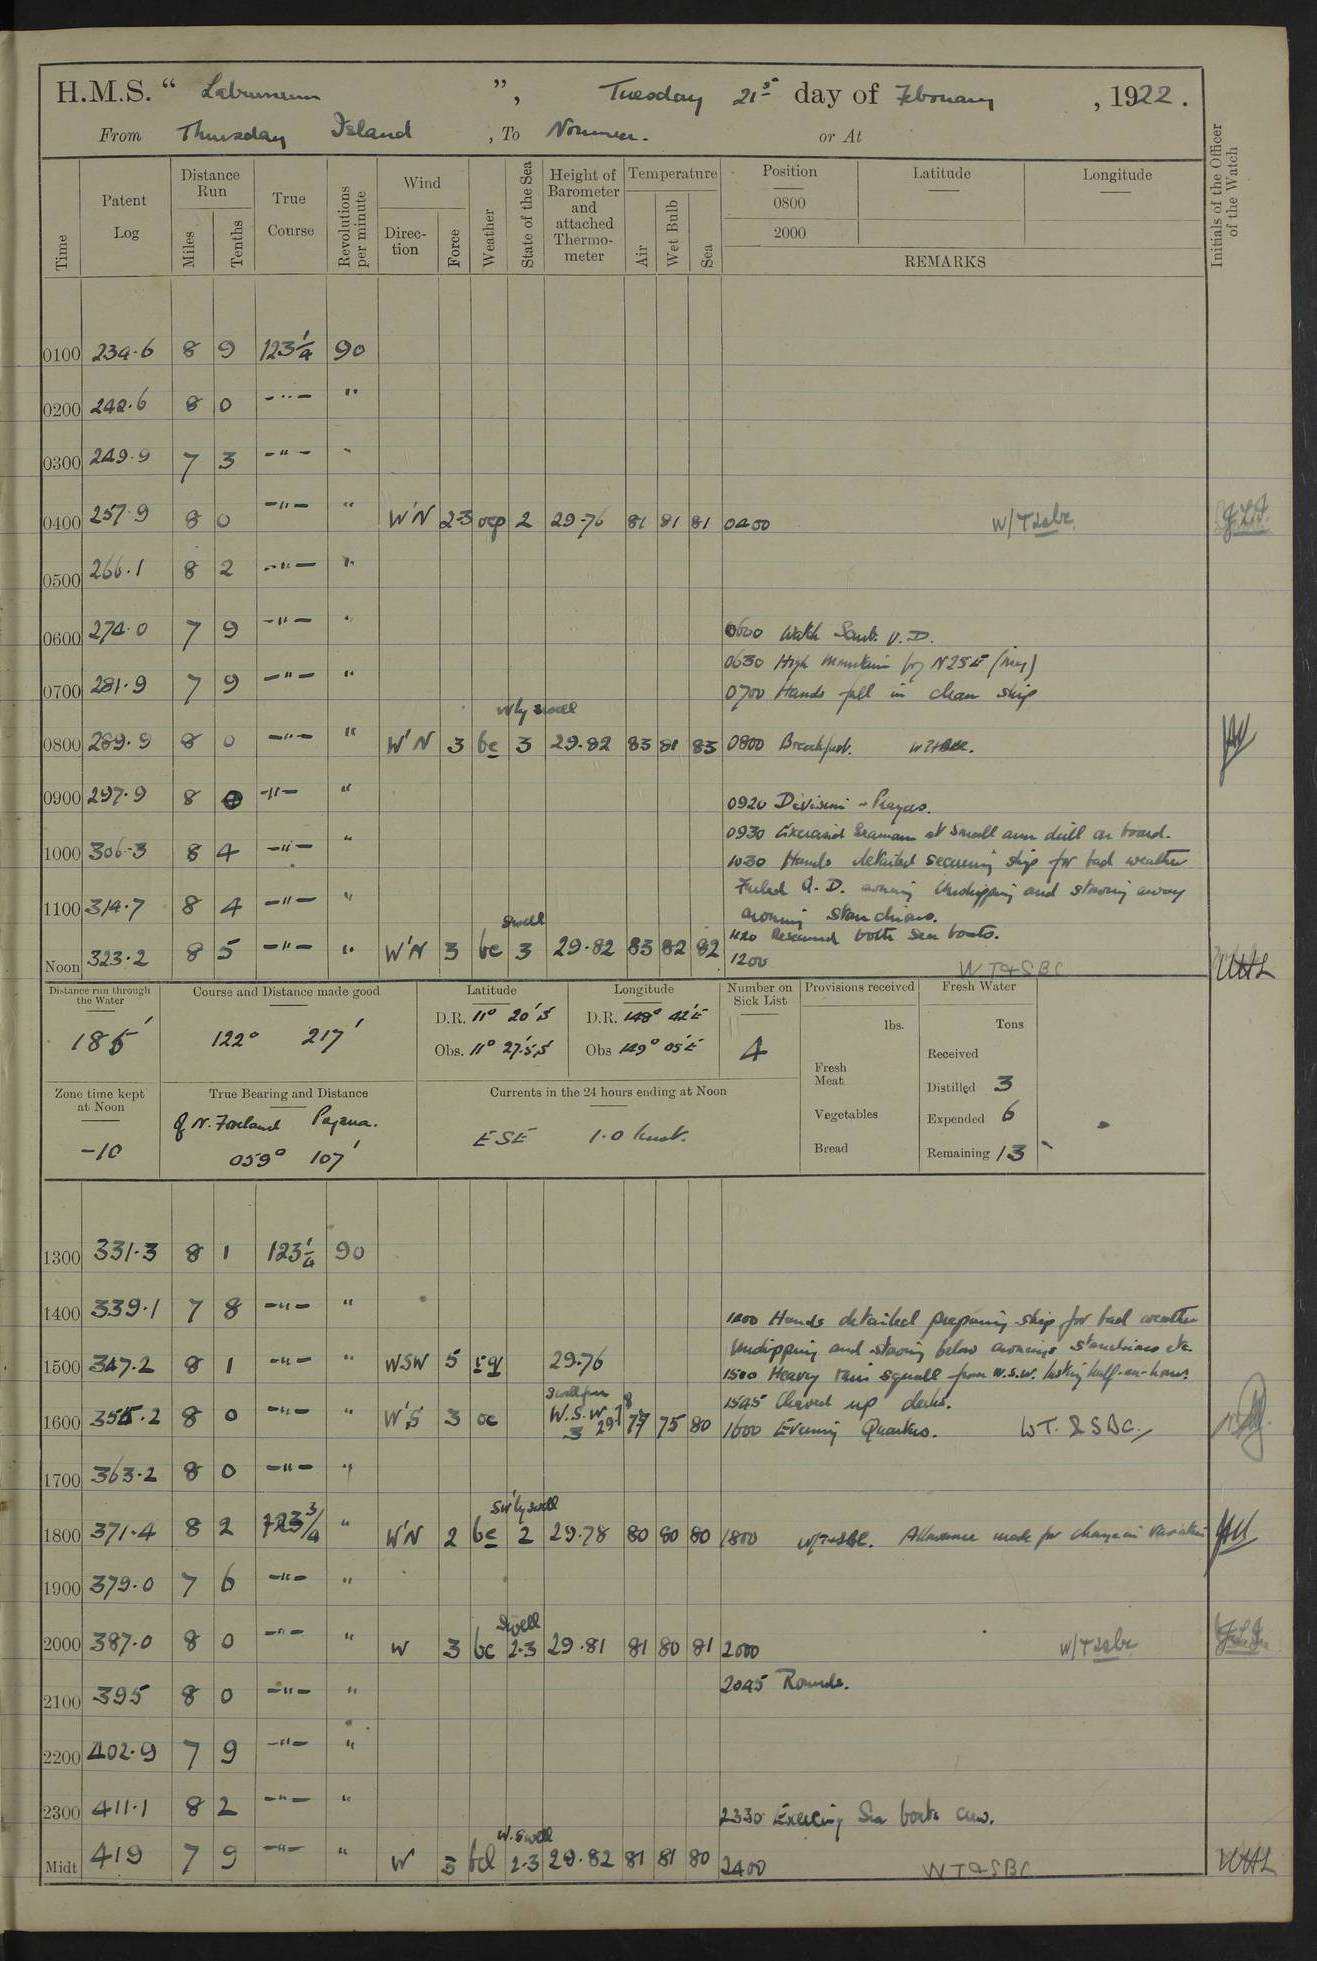 H.M.S. “ Laburnum ”, Tuesday 21st day of February, 1922.
From Thursday Island, To Noumea. or At
Time
Patent Log
Distance Run
Miles
Tenths
True Course
Revolutions per minute
Wind
Direction
Force
Weather
State of the Sea
Height of Barometer and attached Thermometer
Temperature
Air
Wet Bulb
Sea
Position
0800
2000
Latitude
Longitude
REMARKS
Initials of the Officer of the Watch
0100 234.6 8 9 123¼ 90
0200 242.6 8 0 -"- "
0300 249.9 7 3 -"- "
0400 257.9 8 0 -"- " W'N 2-3 ocp 2 29.76 81 81 81 0400 W/T&sbc
0500 266.1 8 2 -"- "
0600 274.0 7 9 -"- " 0600 Watch
0630 High Mountain brg N25E (mag)
0700 281.9 7 9 -"- " 0700 Hands fell in clean ship
W'ly swell
0800 289.9 8 0 -"- " W'N 3 bc 3 29.82 83 81 83 0800 Breakfast. WT&SBC.
0900 297.9 8 0 -"- "
0920 Divisions - Prayers.
0930 Exercised Seamen at Small arm drill on board.
1000 306.3 8 4 -"- "
1030 Hands detailed securing ship for bad weather
Furled Q.D. awning Unshipping and stowing away
1100 314.7 8 4 -"- " awning stanchions.
Swell
1120 Resecured both sea boats.
Noon 323.2 8 5 -"- " W'N 3 bc 3 29.82 83 82 82 1200 WT&SBC
Distance run through the Water
185'
Course and Distance made good
122° 217'
Latitude
D.R. 11° 20'S
Obs. 11° 27.5'S
Longitude
D.R. 148° 42'E
Obs 149° 05'E
Number on Sick List
4
Provisions received
lbs.
Fresh Meat
Vegetables
Bread
Fresh Water
Tons
Received
Distilled 3
Expended 6
Remaining 13
Zone time kept at Noon
-10
True Bearing and Distance
of N. Foreland
059° 107'
Currents in the 24 hours ending at Noon
ESE 1.0 knot.
1300 331.3 8 1 123¼ 90
1400 339.1 7 8 -"- "
Hands detailed preparing ship for bad weather
Unshipping and stowing below awnings stanchions etc
1500 347.2 8 1 -"- " WSW 5 rq 29.76 1500 Heavy rain squall from W.S.W. lasting half-an-hour.
Swell from W.S.W.
1545 Cleared up decks.
1600 355.2 8 0 -"- " W'S 3 oc 3 29.78 77 75 80 1600 Evening Quarters. WT. & SBC.
1700 363.2 8 0 -"- "
SW'ly swell
1800 371.4 8 2 123¾ " W'N 2 bc 2 29.78 80 80 80 1800 W/T&SBC. Allowance made for change in Variation
1900 379.0 7 6 -"- "
Swell
2000 387.0 8 0 -"- " W 3 bc 2-3 29.81 81 80 81 2000 W/T&sbc
2045 Rounds.
2100 395 8 0 -"- "
2200 402.9 7 9 -"- "
2300 411.1 8 2 -"- "
2330 Exercising Sea boats crew.
W. Swell
Midt 419 7 9 -"- " W 3 bcl 2-3 29.82 81 81 80 2400 WT&SBC